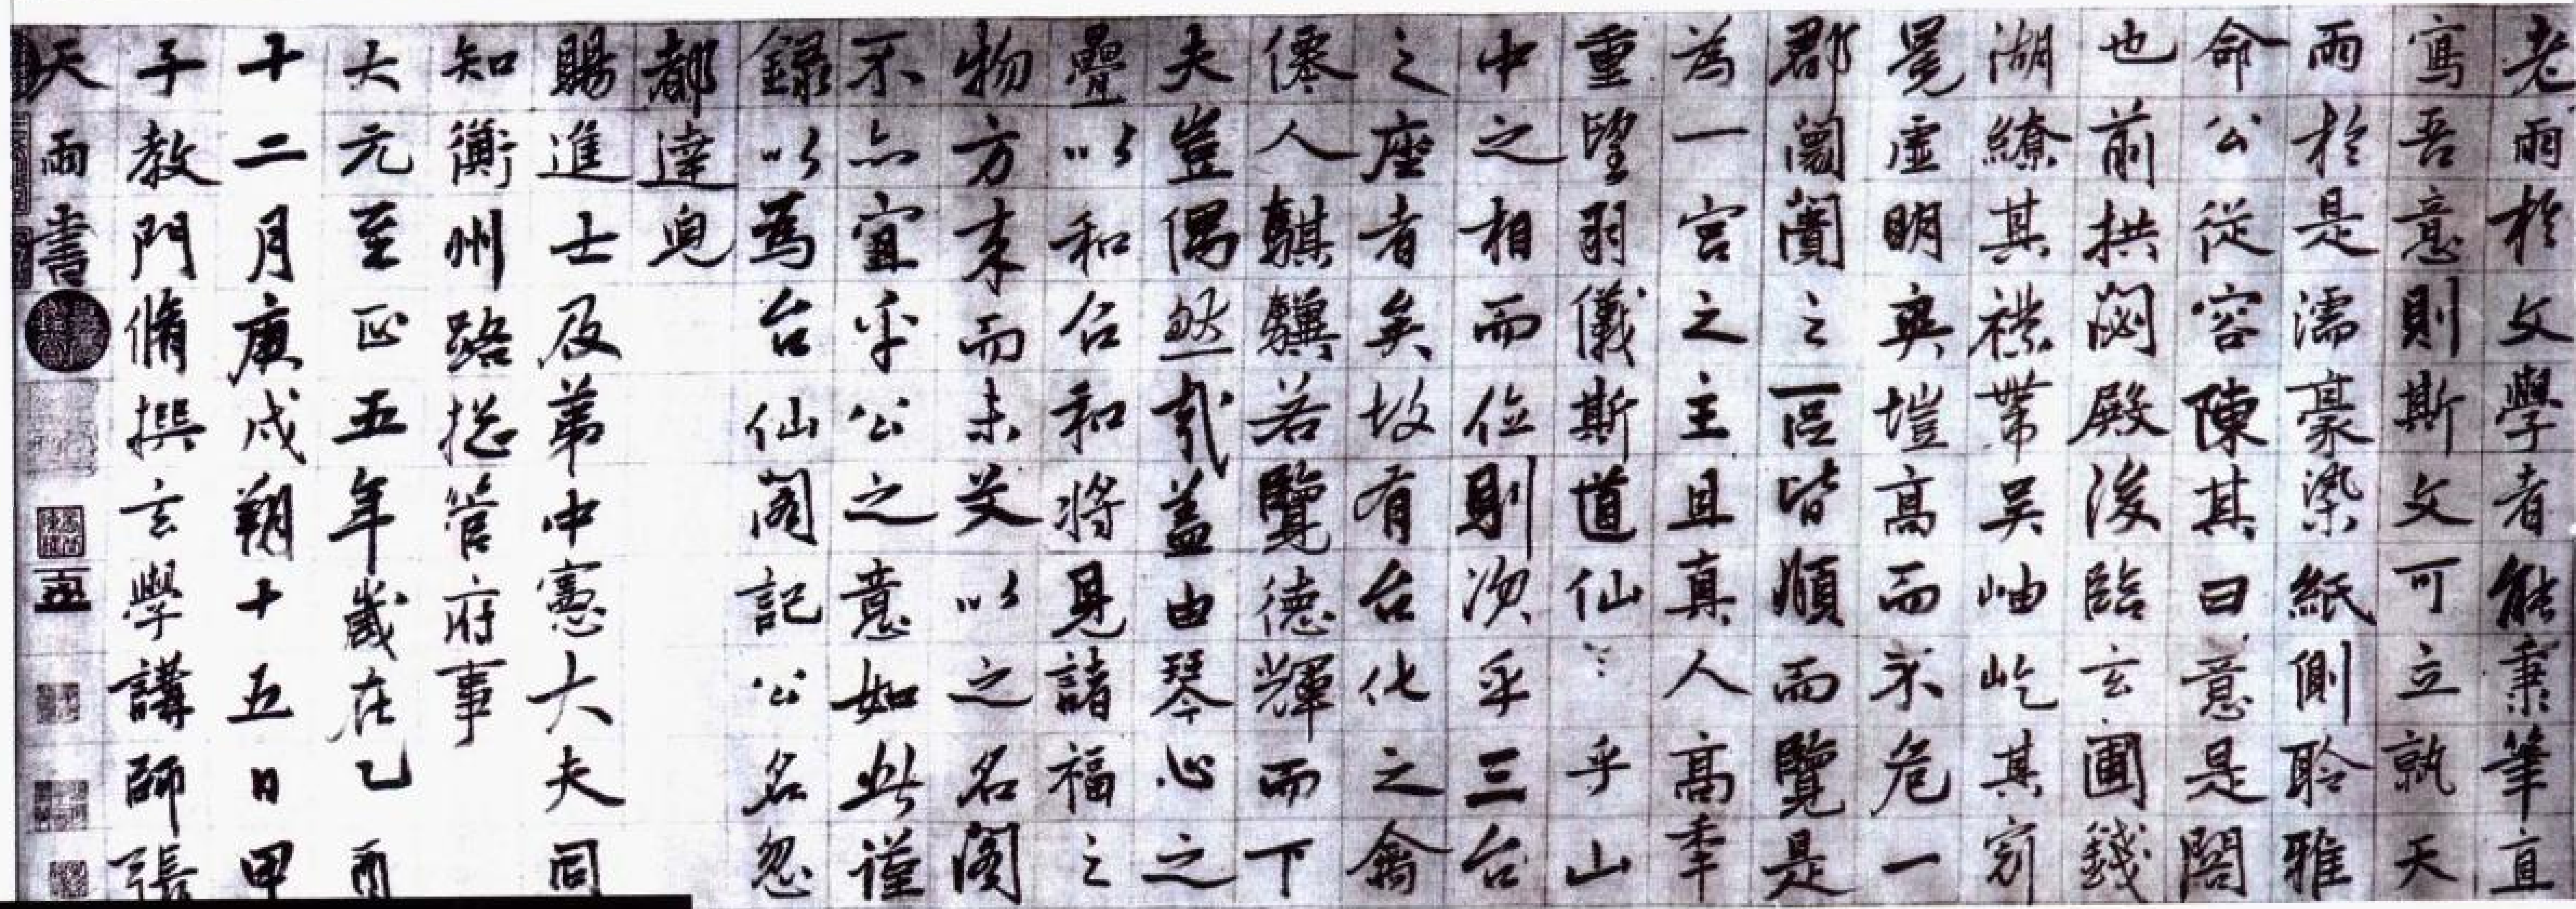 老雨於文學者能秉筆直
寫吾意則斯文可立孰天
雨於是濡豪染紙側聆雅
命公從容陳其曰意是閣
也前拱閟殿後臨玄圃錢
湖繚其襟帶吳岫屹其窓
晃虛明爽塏高而不危一
郡闤闠之區皆順而覽是
為一宮之主且真人高拱
重望羽儀斯道仙仙乎山
中之相而位則次乎三台
之座者矣故有台化之龠
僊人騏驥若覽德輝而下
夫豈偶然哉蓋由琴心之
疊以和召和將見諸福之
物方來而未艾以之名閣
不亦宜乎公之意如此謹
錄以為台仙閣記公名忽
都達兒
賜進士及第中憲大夫同
知衡州路捴管府事
大元至正五年歲在乙酉
十二月庚戌朔十五日甲
子教門脩撰玄學講師張
天雨書